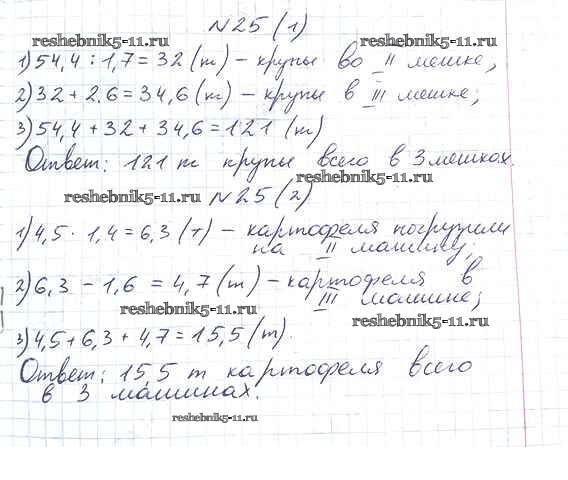 №25 (1)
reshebnik5-11.ru reshebnik5-11.ru
1) 54,4 : 1,7 = 32 (т) – крупы во II мешке,
2) 32 + 2.6 = 34,6 (т) – крупы в III мешке;
3) 54,4 + 32 + 34,6 = 121 (т)
Ответ: 121 т крупы всего в 3 мешках.
reshebnik5-11.ru
reshebnik5-11.ru №25 (2)
1) 4,5 · 1,4 = 6,3 (т) – картофеля погрузили
на II машину;
2) 6,3 – 1,6 = 4,7 (т) – картофеля в
III машине;
reshebnik5-11.ru reshebnik5-11.ru
3) 4,5 + 6,3 + 4,7 = 15,5 (т).
Ответ: 15,5 т картофеля всего
в 3 машинах.
reshebnik5-11.ru